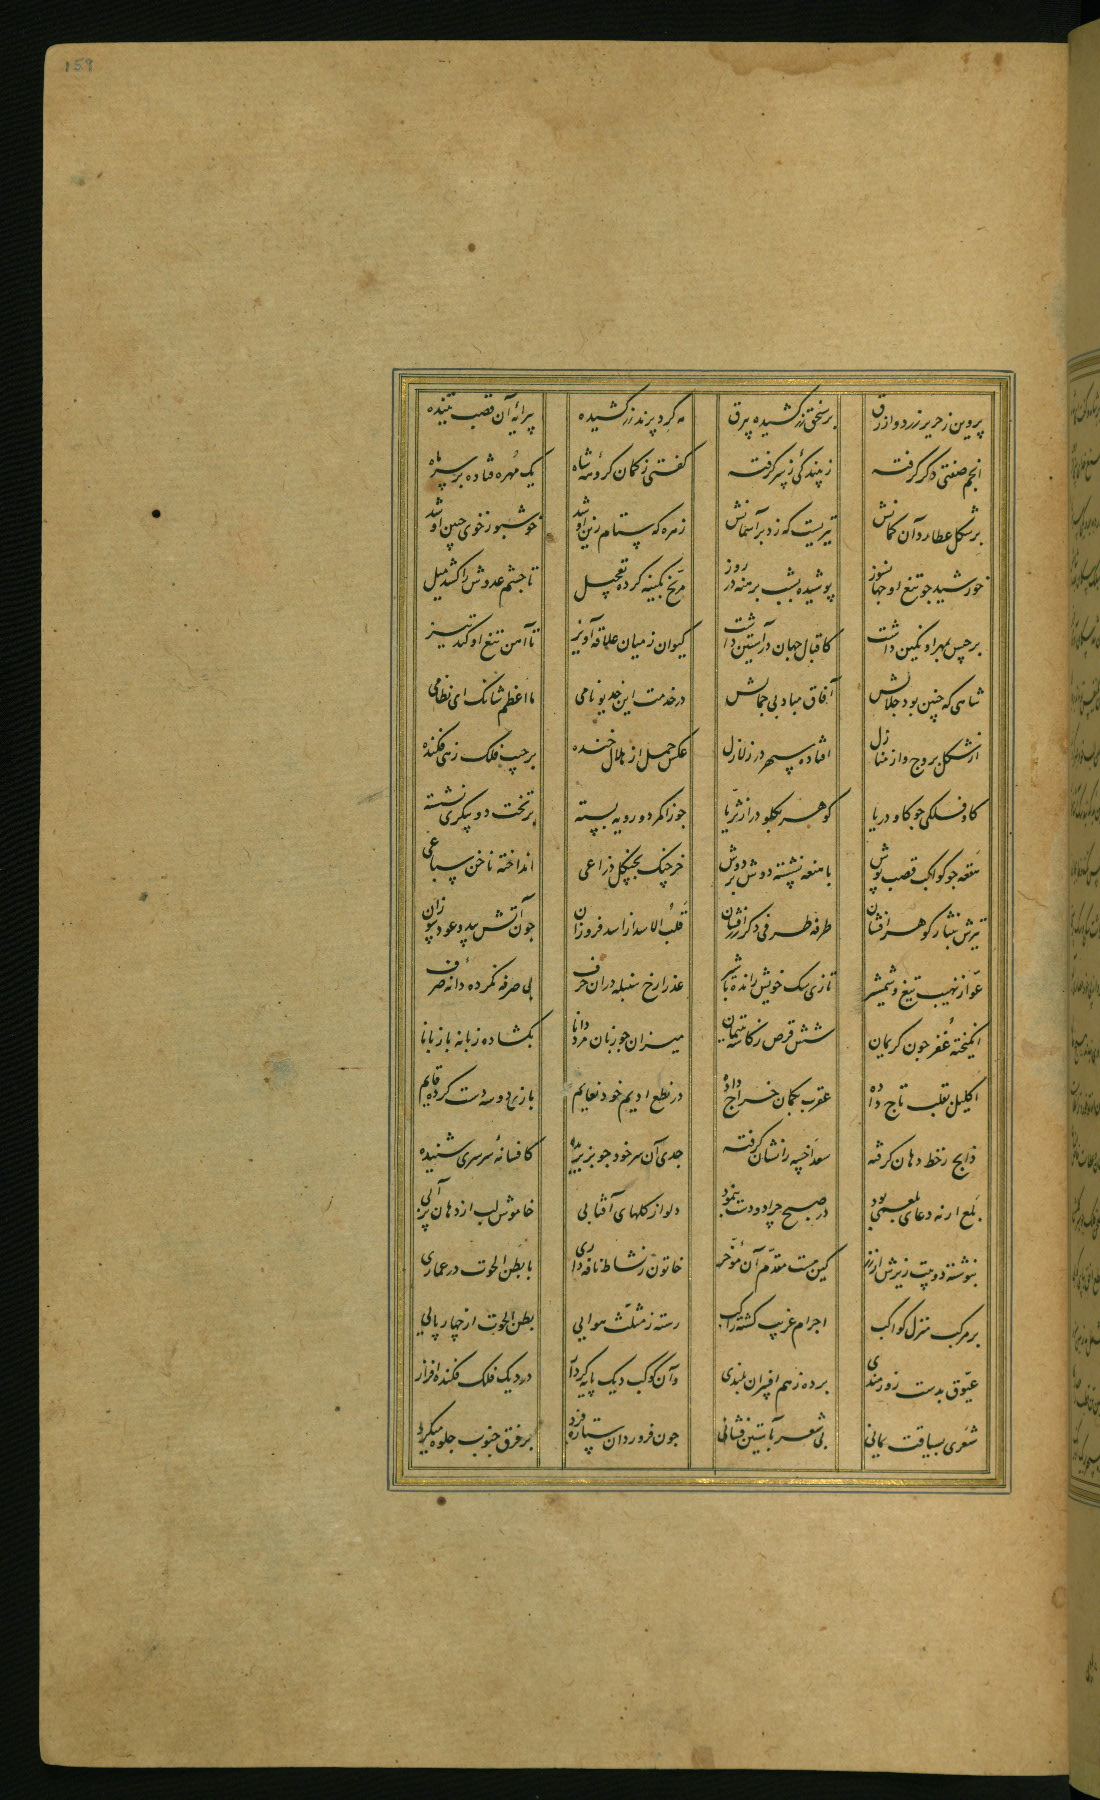 159
پروین ز حریر زرد و ازرق بر سنجق زر کشیده بیرق مه گرد پرند زر کشیده پیرایهٔ آن قصب تنیده
انجم صفتی دگر گرفته زیبندگی ز سر گرفته گفتی ز کمان گروههٔ شاه یک مهره فتاده بر سر ماه
بر شکل عطارد آن کمانش تیریست که زد بر آسمانش زهره که ستام زین او شد خوشبو ز خوی جبین او شد
خورشید چو تیغ او جهانسوز پوشیده بشب برهنه در روز مریخ بکینه کرده تعجیل تا چشم عدوش را کشد میل
برجیس بمهر او نگین داشت کاقبال جهان در آستین داشت کیوان ز میان علاقه آویز تا آهن تیغ او کند تیز
شاهی که چنین بود جلالش آفاق مباد بی جمالش در خدمت این خدیو نامی ما اعظم شانک ای نظامی
از شکل بروج و از منازل افتاده سپهر در زلازل عکس حمل از هلال خنده بر جیب فلک زهی فکنده
گاو فلکی چو گاو دریا گوهر بگلو در از ثریا جوزا کمر دو رویه بسته بر تخت دو پیکری نشسته
هقعه چو کواکب قصب پوش با هنعه نشسته دوش بر دوش خرچنگ بچنگل ذراعی انداخته ناخن سباعی
نثرش بنثار گوهر افشان طرفه طرفی دگر زر افشان قلب الاسد از اسد فروزان چون آتش بید و عود سوزان
عوا ز نهیب تیغ و شمشیر تازی سگ خویش رانده با شیر عذرا رخ سنبله در آن حرف بی صرفه نکرده دانهٔ صرف
انگیخته غفر چون کریمان شش قرص ز کاسه یتیمان میزان چو زبان مرد دانا بگشاده زبانه با زبانا
اکلیل بقلب تاج داده عقرب بکمان خراج داده در نطع ادیم خود نعایم بازی بدو سه دست کرده قایم
ذابح ز خط دهان گرفته سعد اخبیه را نشان گرفته جدی آن سر خود چو بز بریده کافسانهٔ سرسری شنیده
بلع ار نه دعای بلعمی بود در صبح چرا دو دست بنمود دلو از کلهای آفتابی خاموش لب از دهان پر آبی
بنوشته دو بیت زیرش از زر کین هست مقدم آن مؤخر خاتون رشا ط نافه داری با بطن الحوت در عماری
بر مرکب منزل کواکب اجرام غریب گشته راکب رسته ز مثلث هوایی بطن الحوت از چهارپایی
عیوق بدست زورمندی برده ز هم افسران بلندی وآن کوکب دیک پایه کردار در دیک فلک فکنده افزار
شعری بسیاقت یمانی بی شعر بآستین فشانی چون فرد روان ستاره فرد بر فرق جنوب جلوه میکرد